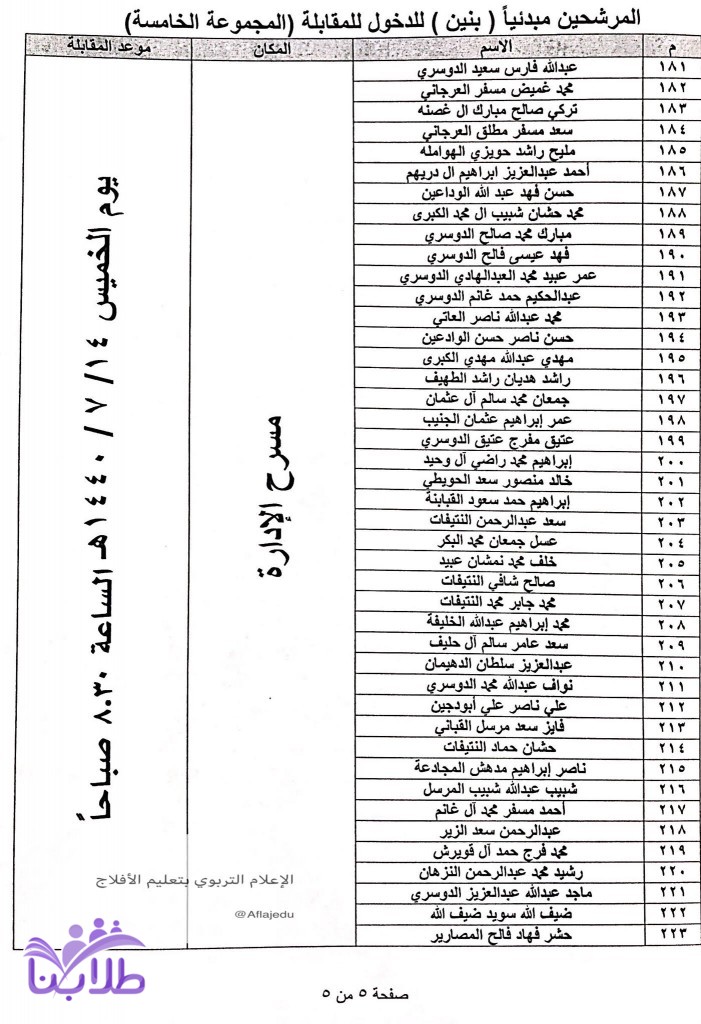 المرشحين مبدئياً ( بنين ) للدخول للمقابلة (المجموعة الخامسة)
م الاسم المكان موعد المقابلة
١٨١ عبدالله فارس سعيد الدوسري
١٨٢ محمد غميض مسفر العرجاني
١٨٣ تركي صالح مبارك ال غصنه
١٨٤ سعد مسفر مطلق العرجاني
١٨٥ مليح راشد حويزي الهوامله
١٨٦ أحمد عبدالعزيز ابراهيم ال دريهم
١٨٧ حسن فهد عبد الله الوداعين
١٨٨ محمد حشان شبيب ال محمد الكبرى
١٨٩ مبارك محمد صالح الدوسري
١٩٠ فهد عيسى فالح الدوسري
١٩١ عمر عبيد محمد العبدالهادي الدوسري
١٩٢ عبدالحكيم حمد غانم الدوسري
١٩٣ محمد عبدالله ناصر العاتي
١٩٤ حسن ناصر حسن الوادعين
١٩٥ مهدي عبدالله مهدي الكبرى
١٩٦ راشد هديان راشد الطهيف
١٩٧ جمعان محمد سالم آل عثمان
١٩٨ عمر إبراهيم عثمان الجنيب
١٩٩ عتيق مفرج عتيق الدوسري
٢٠٠ إبراهيم محمد راضي آل وحيد
٢٠١ خالد منصور سعد الحويطي
٢٠٢ إبراهيم حمد سعود القبابنة
٢٠٣ سعد عبدالرحمن النتيفات
٢٠٤ عسل جمعان محمد البكر
٢٠٥ خلف محمد نمشان عبيد
٢٠٦ صالح شافي النتيفات
٢٠٧ محمد جابر محمد النتيفات
٢٠٨ محمد إبراهيم عبدالله الخليفة
٢٠٩ سعد عامر سالم آل حليف
٢١٠ عبدالعزيز سلطان الدهيمان
٢١١ نواف عبدالله محمد الدوسري
٢١٢ علي ناصر علي أبودجين
٢١٣ فايز سعد مرسل القباني
٢١٤ حشان حماد النتيفات
٢١٥ ناصر إبراهيم مدهش المجادعة
٢١٦ شبيب عبدالله شبيب المرسل
٢١٧ أحمد مسفر محمد آل غانم
٢١٨ عبدالرحمن سعد الزير
٢١٩ محمد فرج حمد آل قويرش
٢٢٠ رشيد محمد عبدالرحمن النزهان
٢٢١ ماجد عبدالله عبدالعزيز الدوسري
٢٢٢ ضيف الله سويد ضيف الله
٢٢٣ حشر فهاد فالح المصارير
مسرح الإدارة
يوم الخميس ١٤ /٧ /١٤٤٠هـ الساعة ٨.٣٠ صباحاً
الإعلام التربوي بتعليم الأفلاج
@Aflajedu
طلابنا
صفحة ٥ من ٥